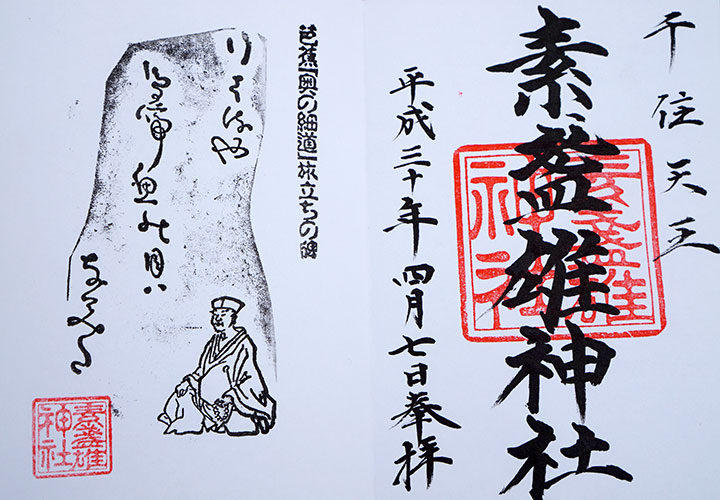 千住天王
素盞雄神社
平成三十年四月七日奉拝
素盞雄
神社
芭蕉「奥の細道」旅立ちの碑
行はるや
鳥啼魚の目ハ
なみた
素盞雄
神社